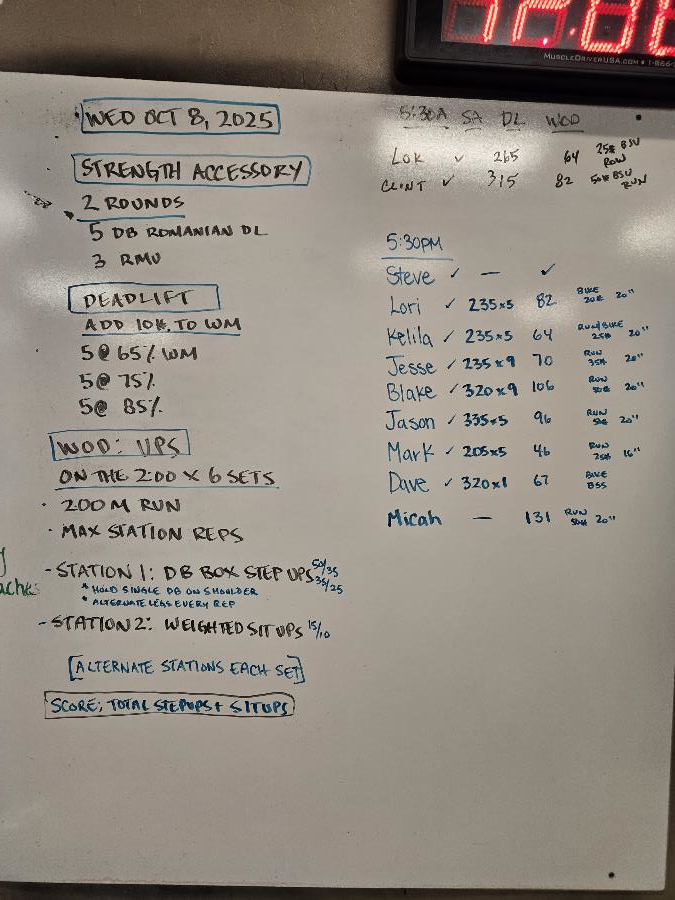 MUSCLEDRIVERUSA.COM • 1-866-
WED OCT 8, 2025
STRENGTH ACCESSORY
2 ROUNDS
5 DB ROMANIAN DL
3 RMU
DEADLIFT
ADD 10#, TO WM
5@ 65% WM
5@ 75%
5@ 85%
WOD: UPS
ON THE 2:00 X 6 SETS
· 200 M RUN
· MAX STATION REPS
- STATION 1: DB BOX STEP UPS 50/35 35/25
* HOLD SINGLE DB ON SHOULDER
* ALTERNATE LEGS EVERY REP
- STATION 2: WEIGHTED SIT UPS 15/10
[ALTERNATE STATIONS EACH SET]
SCORE: TOTAL STEPUPS + SITUPS
5:30A SA DL WOD
LOK ✓ 265 64 25# BSU ROW
CLINT ✓ 315 82 50# BSU RUN
5:30PM
Steve ✓ — ✓
Lori ✓ 235×5 82 BIKE 20# 20"
Kelila ✓ 235×5 64 RUN/BIKE 25# 20"
Jesse ✓ 235×9 70 RUN 35# 20"
Blake ✓ 320×9 106 RUN 50# 20"
Jason ✓ 335×5 96 RUN 50# 20"
Mark ✓ 205×5 46 RUN 25# 16"
Dave ✓ 320×1 67 BIKE BSS
Micah — 131 RUN 50# 20"